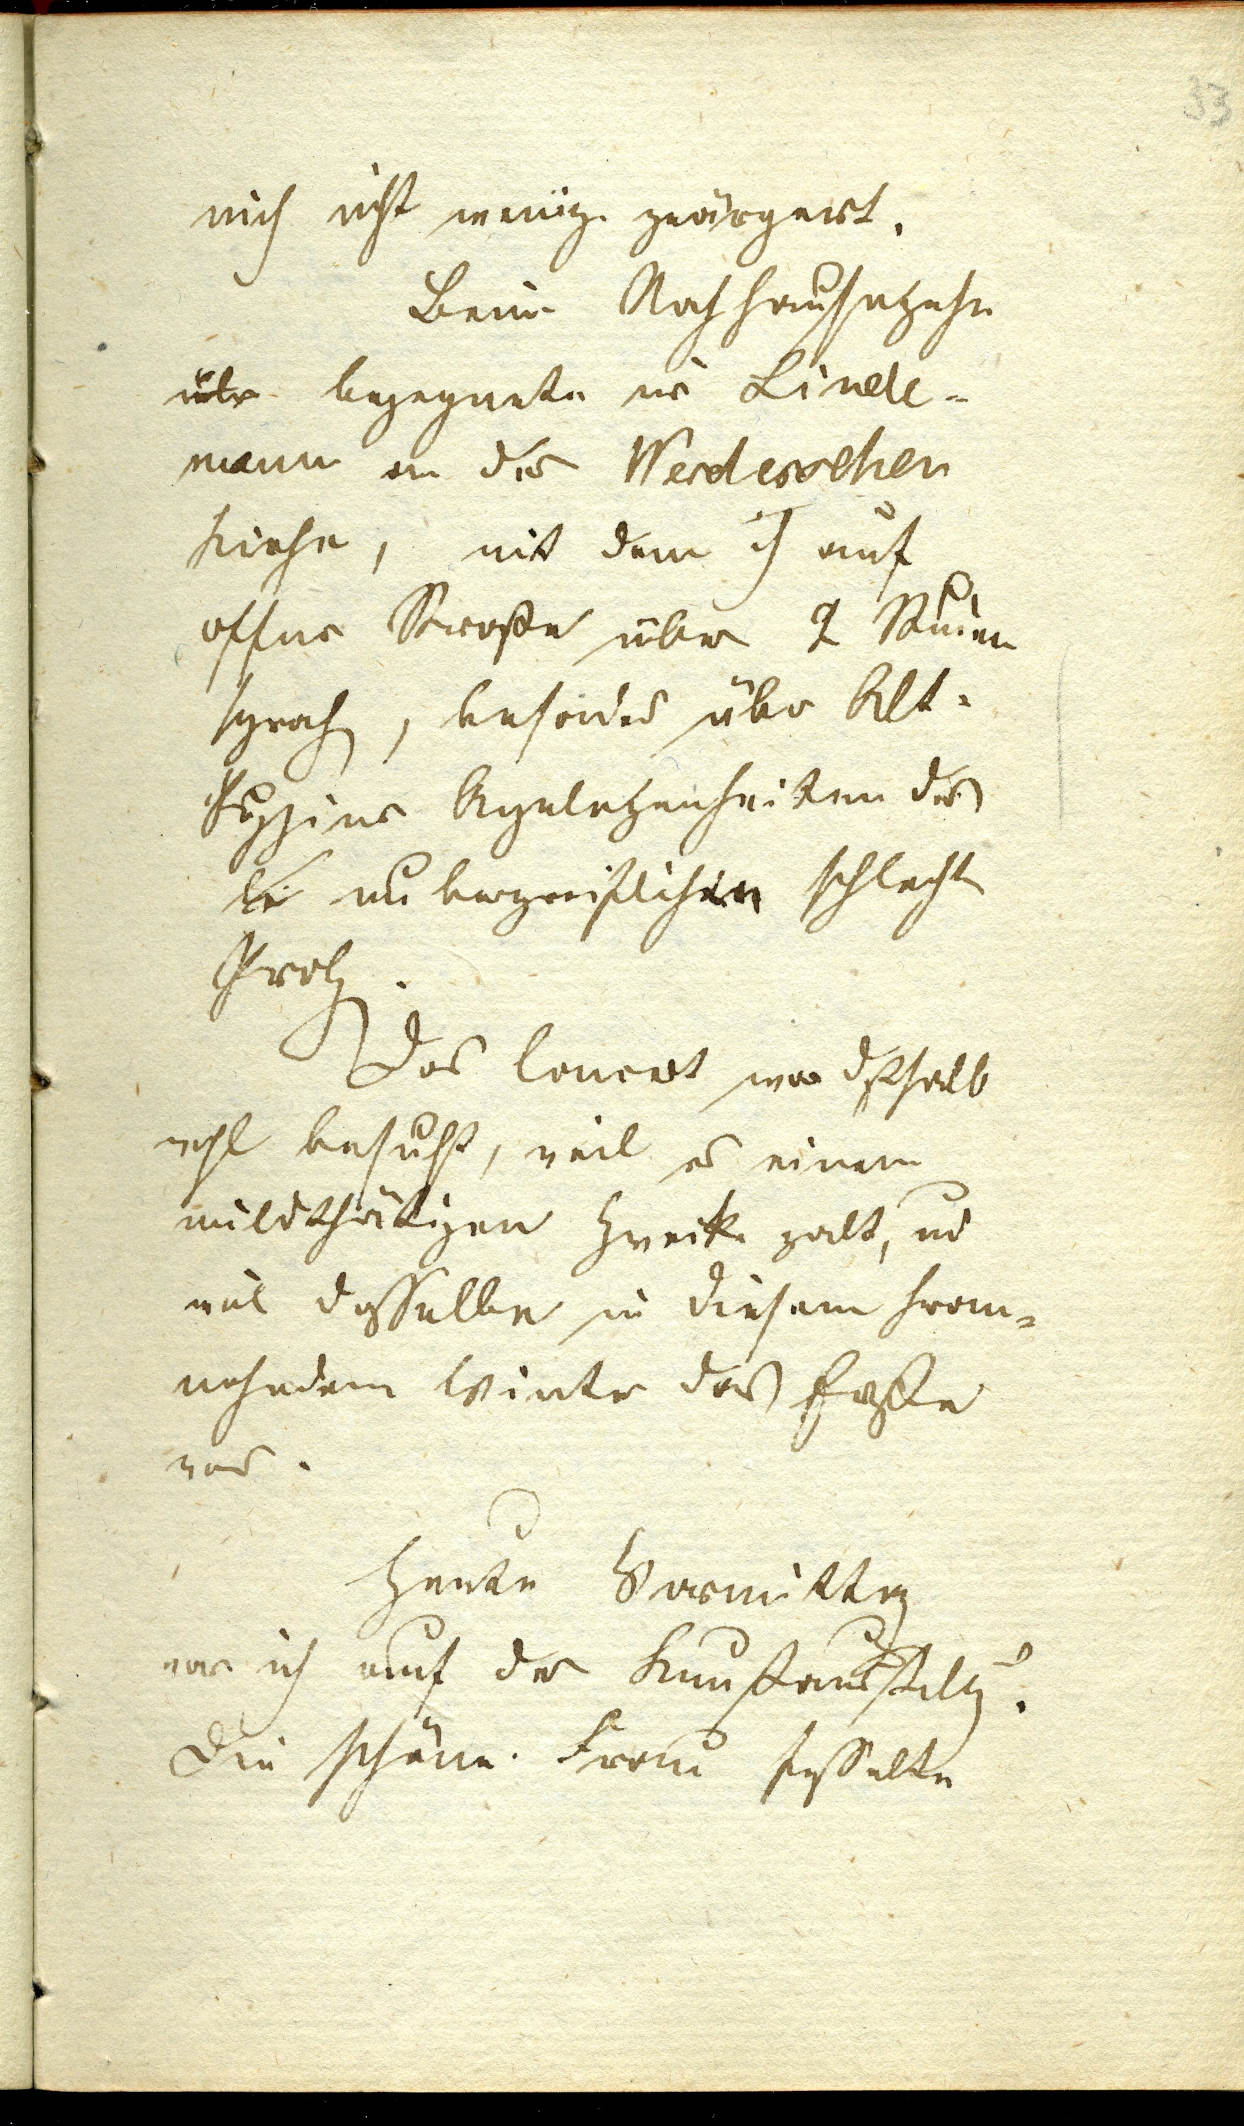 33
mich nicht wenig geärgert.
Beim Nachhausegehn
begegnete mir Linde-
mann an der Werderschen
Kirche, mit dem ich auf
offner Straße über 2 Stunden
sprach, besonders über Alt-
Angelegenheiten des
unbegreiflichen schlecht
Das Concert war deshalb
wohl besucht, weil es einem
mildthätigen Zwecke galt, und
weil dasselbe in diesem heran-
nahendem Winter das Erste
war.
Heute Vormittag
war ich auf der Kunstausstellg.
Die schöne Frau fesselte